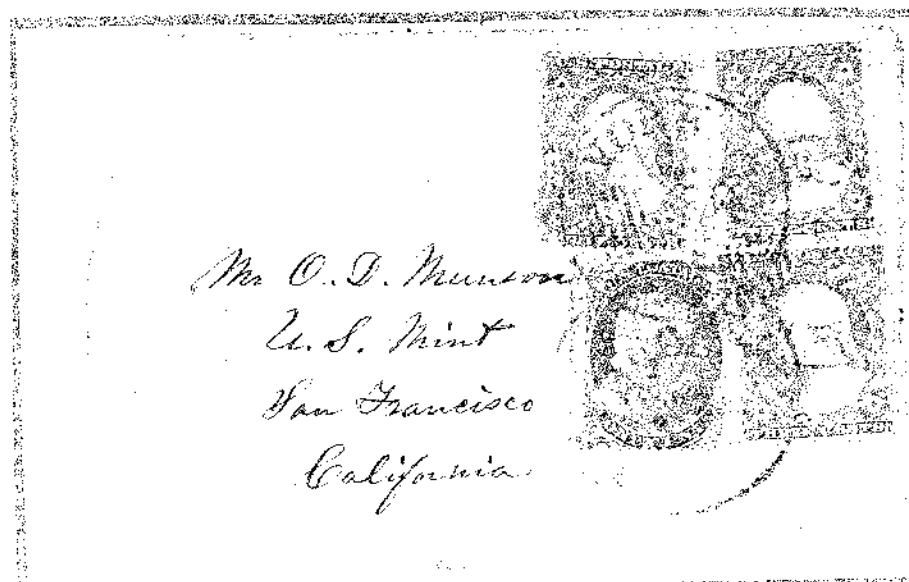 Mr O. D. Munson
U. S. Mint
San Francisco
California